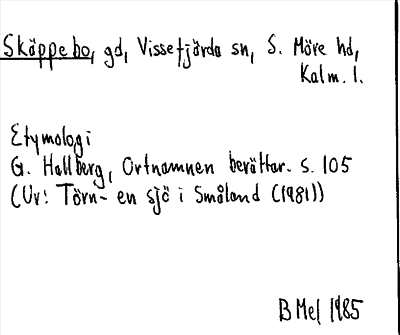 Skäppebo, gd, Vissefjärda sn, S. Möre hd,
Kalm. l.
Etymologi
G. Hallberg, Ortnamnen berättar. s. 105
(Ur: Törn- en sjö i Småland (1981))
B Mel 1985